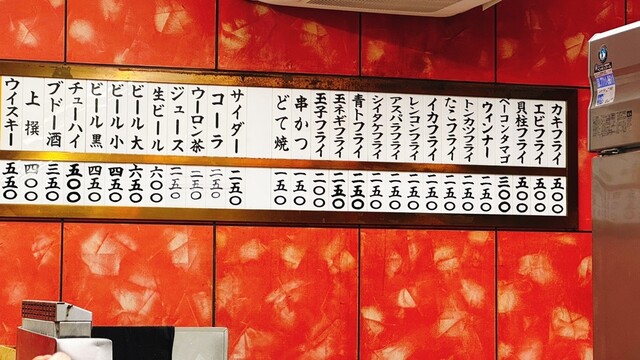 カキフライ 五〇〇
エビフライ 五〇〇
貝柱フライ 五〇〇
ベーコンタマゴ 三〇〇
ウィンナー 二五〇
トンカツフライ 二五〇
たこフライ 二五〇
イカフライ 二五〇
レンコンフライ 二五〇
アスパラフライ 二五〇
シイタケフライ 二五〇
青トフライ 二五〇
玉ネギフライ 二五〇
玉子フライ
串かつ 一五〇
どて焼 一五〇
サイダー 二五〇
コーラ 二五〇
ウーロン茶 二五〇
ジュース 二五〇
生ビール 六〇〇
ビール大 六五〇
ビール小 四五〇
ビール黒 四五〇
チューハイ 五〇〇
ブド酒 三五〇
上撰 四〇〇
ウイスキー 五五〇